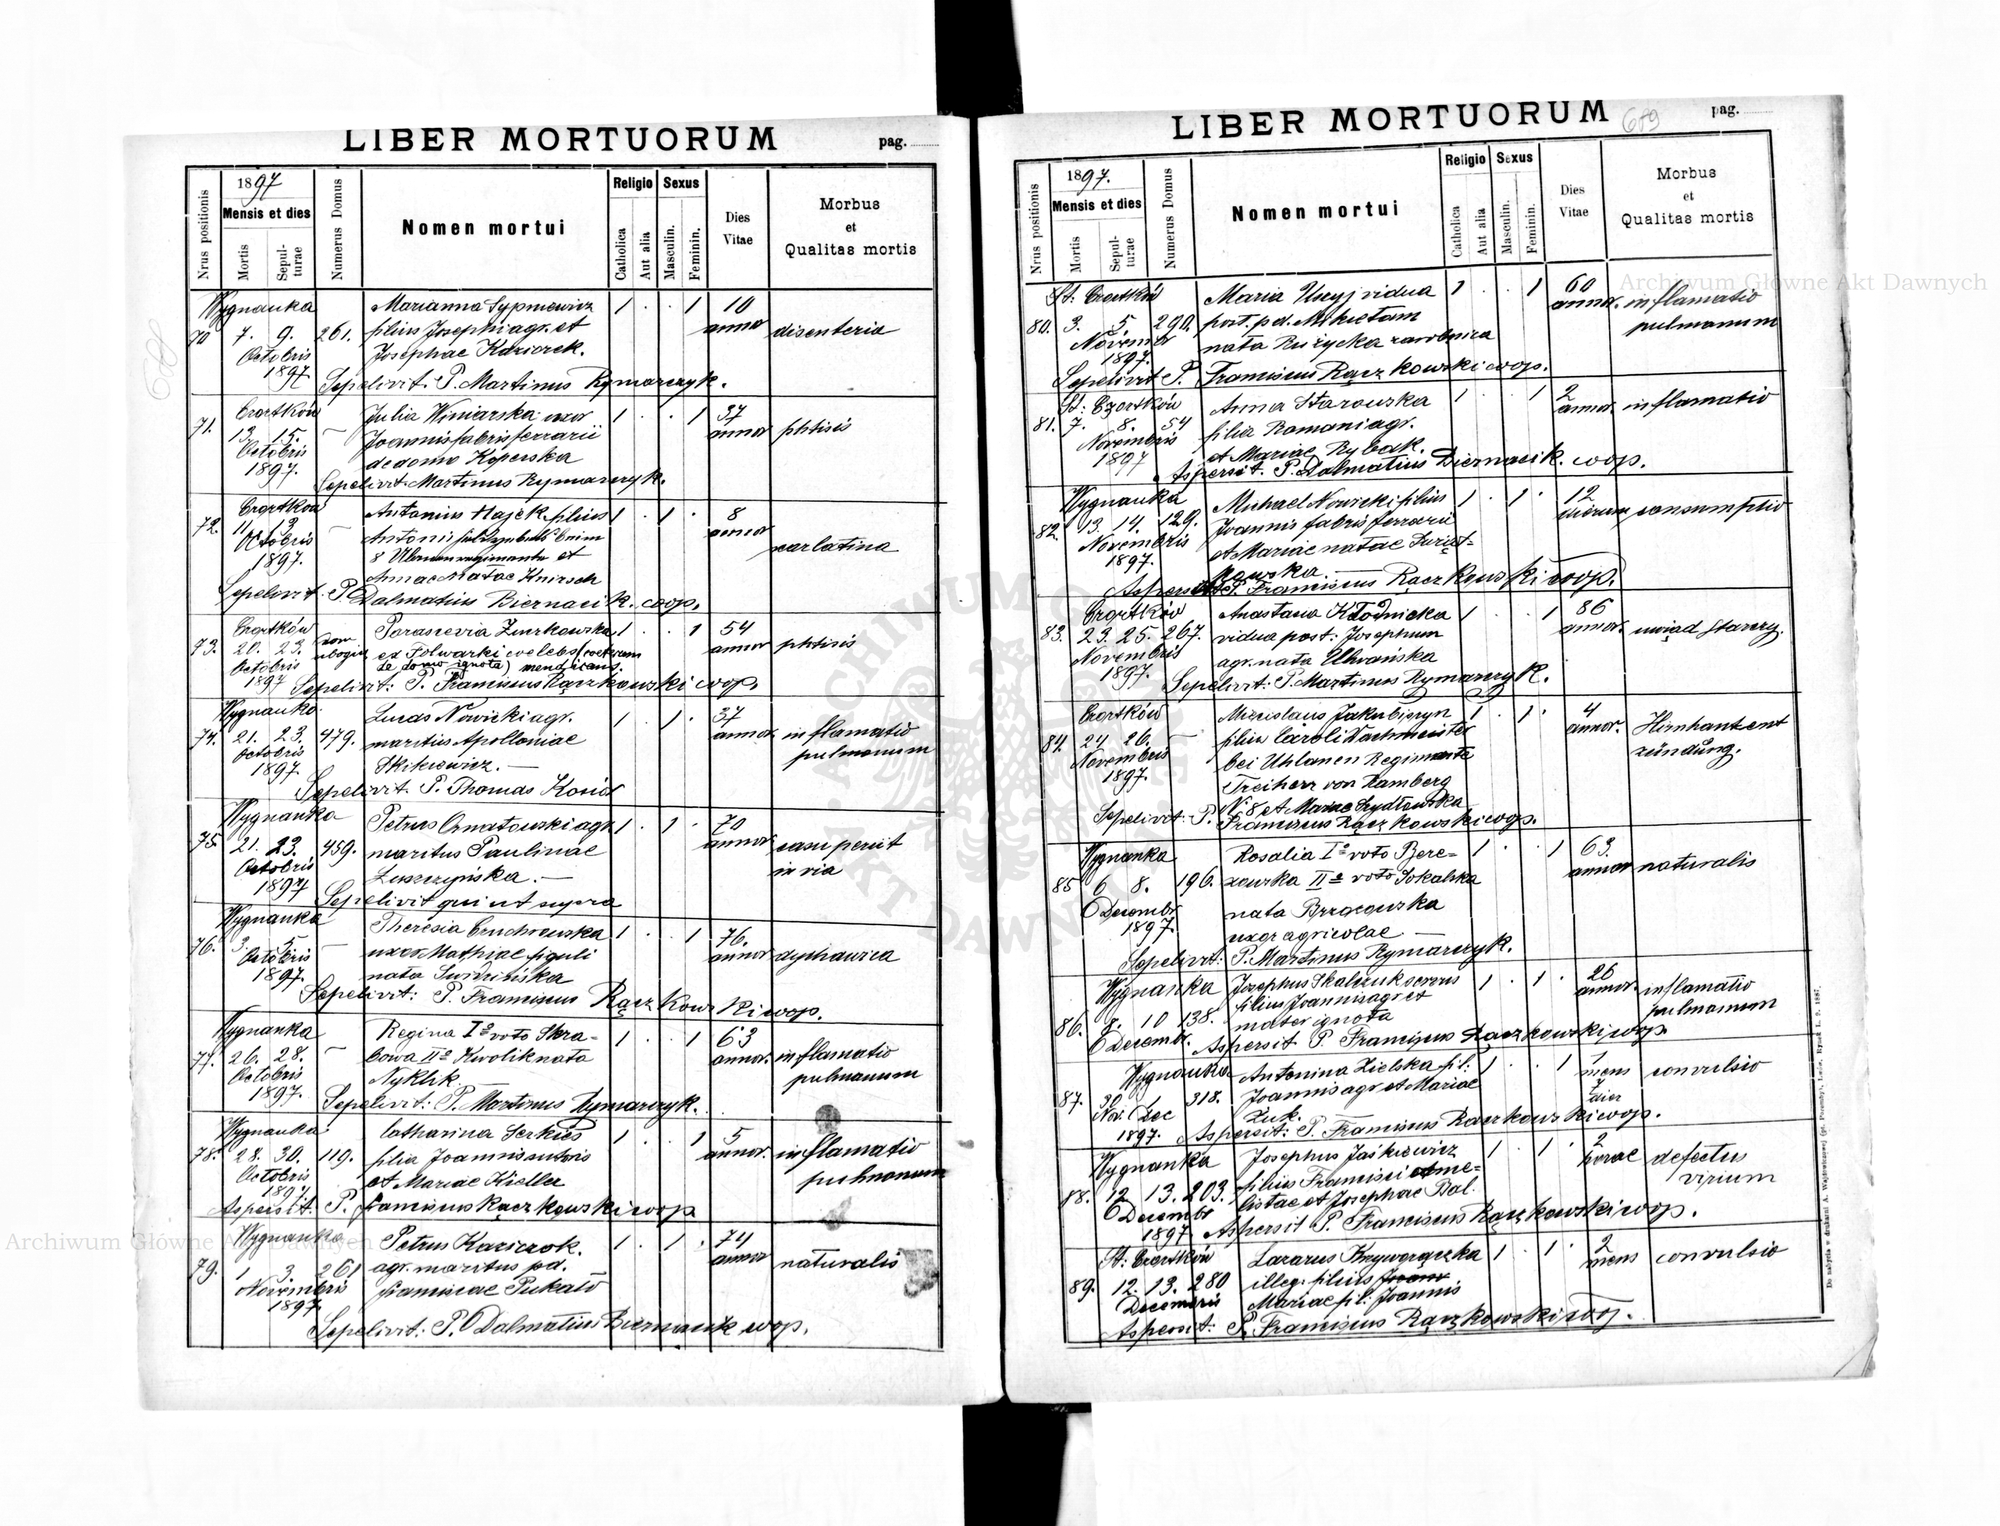 LIBER MORTUORUM
pag.
Nrus positionis
1897
Mensis et dies
Mortis
Sepulturae
Numerus Domus
Nomen mortui
Religio
Catholica
Aut alia
Sexus
Masculin.
Feminin.
Dies Vitae
Morbus
et
Qualitas mortis
Wygnanka Marianna Sypniewicz 1 . . 1 10
70 7. 9. 261. filius Josephi agr. et annor disenteria
Octobris Josephae Kazierek.
1897 Sepelivit: P. Martinus Rymarczyk.
Czortków Julia Winiarska uxor 1 . . 1 37
71. 13. 15. – Joannis fabri ferrarii annor phtisis
Octobris de domo Koperska
1897. Sepelivit Martinus Rymarczyk.
Czortków Antonius Hajek filius 1 . 1 . 8
72. 11. 13. – Antonii beim annor
Octobris 8 Uhlanenregimente et scarlatina
1897. Annae natae Knirsch
Sepelivit P. Dalmatius Biernacik. coop.
Czortków Parascevia Zmrkowska 1 . . 1 54
73. 20. 23. dom ubogich ex Folwarki coelebs (coeterum annor phtisis
Octobris de domo ignota) mendicans.
1897 Sepelivit: P. Franciscus Rączkowski coop.
Wygnanka Lucas Nowicki agr. 1 . 1 . 37
74. 21. 23. 479. maritus Apolloniae annor. inflamatio
Octobris pulmonum
1897.
Sepelivit P. Thomas
Wygnanka Petrus Ornatowski agr. 1 . 1 . 70
75. 21. 23. 459. maritus Paulinae annor. casu periit
Octobris Łuszczyńska. – in via
1897 Sepelivit qui ut supra
Wygnanka Theresia 1 . . 1 76.
76. 3. 5. – uxor Mathiae figuli annor dychawica
Octobris nata Swidzińska
1897. Sepelivit: P. Franciscus Rączkowski coop.
Wygnanka Regina Iº voto Skra- 1 . . 1 63
77. 26. 28. – bowa IIº Kwolik nata annor. inflamatio
Octobris Nyklik. pulmonum
1897. Sepelivit: P. Martinus Rymarczyk.
Wygnanka Catharina Serkies 1 . . 1 5
78. 28. 30. 119. filia Joannis sutoris annor. inflamatio
Octobris et Mariae Kieller pulmonum
1897
Aspersit: P. Franciscus Rączkowski coop
Wygnanka Petrus Kazierok. 1 . 1 . 74
79. 1 3. 261 agr. maritus pd. annor naturalis
Novembris Franciscae Pukało
1897
Sepelivit: P. Dalmatius Biernacik coop.
LIBER MORTUORUM 689
pag.
Nrus positionis
1897.
Mensis et dies
Mortis
Sepulturae
Numerus Domus
Nomen mortui
Religio
Catholica
Aut alia
Sexus
Masculin.
Feminin.
Dies Vitae
Morbus
et
Qualitas mortis
St: Czortków Maria Uszyj vidua 1 . . 1 60
80. 3. 5. 290. post. pd. Mikietam annor. inflamatio
Novembr nata Rużycka zarobnica pulmonum
1897.
Sepelivit P. Franciscus Rączkowski coop.
St: Czortków Anna Starowska 1 . . 1 2
81. 7. 8. 54 filia Romani agr. annor. inflamatio
Novembris et Mariae Rybak.
1897 Aspersit. P. Dalmatius Biernacik. coop.
Wygnanka Michael Nowicki filius 1 . 1 . 12
82. 13. 14. 129. Joannis fabri ferrarii dierum consumptio
Novembris et Mariae natae
1897.
Aspersit P. Franciscus Rączkowski coop.
Czortków Anastasia Kłodnicka 1 . . 1 86
83. 23. 25. 267. vidua post: Josephum annor. uwiąd starczy.
Novembris agr. nata Ulwańska
1897. Sepelivit: P. Martinus Rymarczyk.
Czortków Mieczislaus Jakubiszyn 1 . 1 . 4
84. 24. 26. – filius Caroli Wachmeister annor. Hirnhautent
Novembris bei Uhlanen Regimente zündung.
1897. Freiherr von Ramberg
N: 8 et Mariae Szydłowska
Sepelivit: P. Franciscus Rączkowski coop.
Wygnanka Rosalia Iº voto Bere- 1 . . 1 63.
85 6 8. 196. zowska IIº voto Sokalska annor naturalis
Decembr nata Brzozowska
1897. uxor agricolae –
Sepelivit: P. Martinus Rymarczyk.
Wygnanka Josephus Skalczuk 1 . 1 . 26
86. 8. 10 138. filius Joannis agr et annor. inflamatio
Decembr. mater ignota pulmonum
Aspersit P. Franciscus Rączkowski coop.
Wygnanka Antonina Zielska fil: 1 . . 1 1 mens convulsio
87. 30 318. Joannis agr et Mariae 7 dier
Nov. Dec Żuk.
1897. Aspersit: P. Franciscus Raczkowski coop.
Wygnanka Josephus Jaśkiewicz 1 . 1 . 2
88. 12 13. 203. filius Francisci ame- horae defectus
Decembr listae et Josephae Bal. virium
1897 Aspersit P. Franciscus Rączkowski coop.
St: Czortków Lazarus Krzyworączka 1 . 1 . 2
89. 12. 13. 280 illeg: filius Joann mens convulsio
Decembris Mariae fil: Joannis
Aspersit: P. Franciscus Rączkowski coop.
Archiwum Główne Akt Dawnych
Archiwum Główne Akt Dawnych
ARCHIWUM GŁÓWNE AKT DAWNYCH